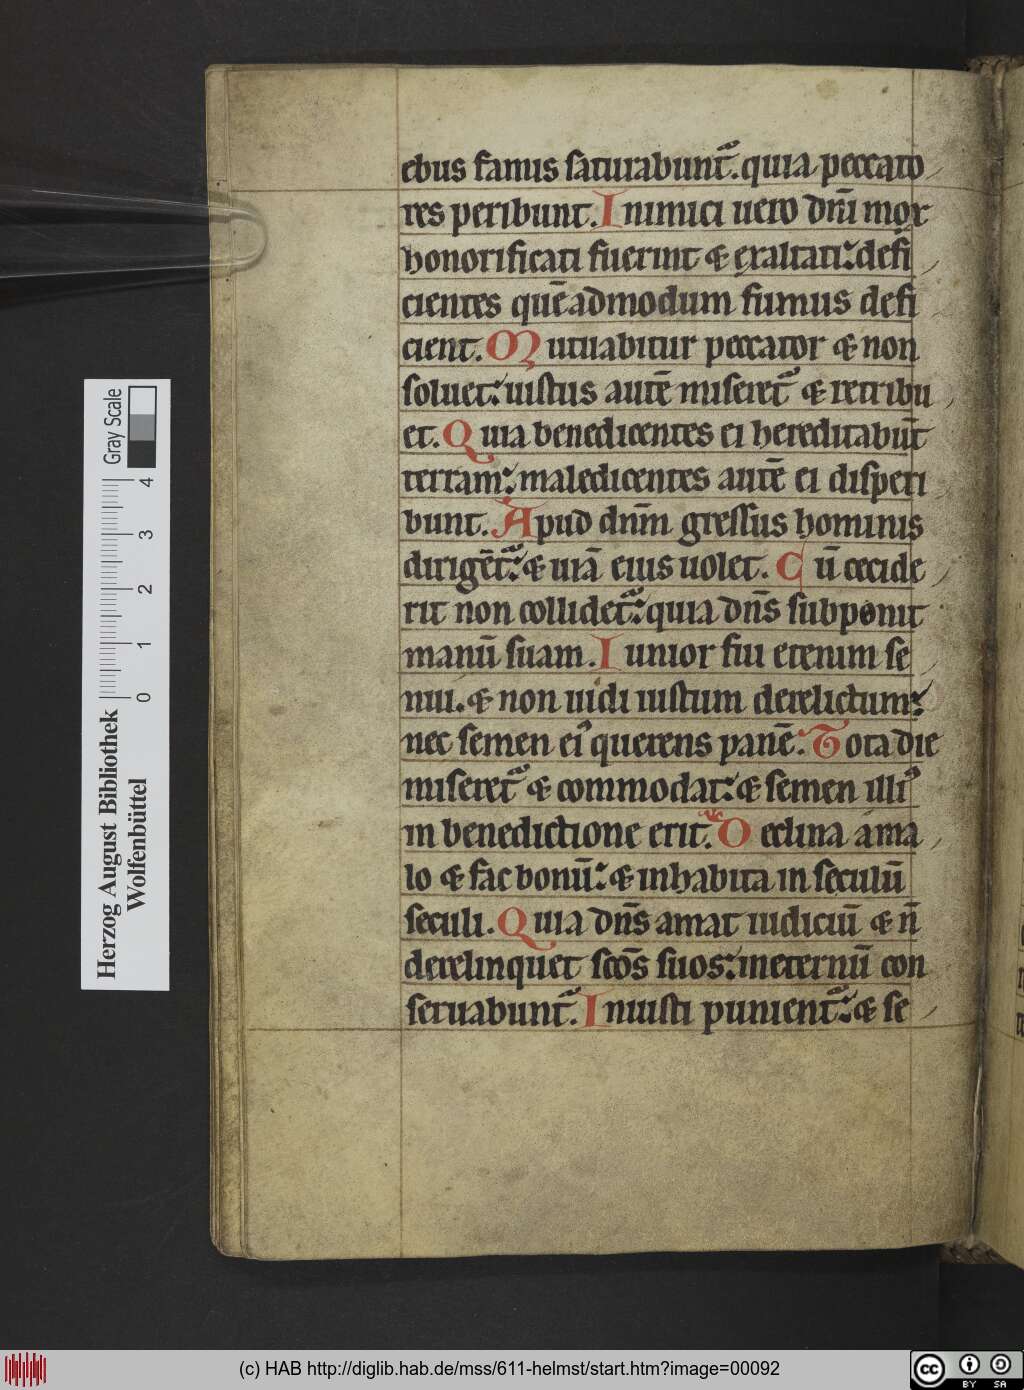 ebus famis saturabunt᷑. quia peccato
res peribunt. Inimici uero dn̄i mox
honorificati fuerint & exaltati: defi
cientes quēadmodum fumus defi
cient. Mutuabitur peccator & non
soluet: iustus autē miseret᷑ & retribu
et. Quia benedicentes ei hereditabūt
terram: maledicentes autē ei disperi
bunt. Apud dn̄m gressus hominis
dirigēt᷑: & uiā eius uolet. Cū cecide
rit non collidet᷑: quia dn̄s subponit
manū suam. Iunior fui etenim se
nui. & non uidi iustum derelictum:
nec semen ei᷒ querens panē. Tota die
miseret᷑ & commodat: & semen illi᷒
in benedictione erit. Declina a ma
lo & fac bonū: & inhabita in seculū
seculi. Quia dn̄s amat iudiciū & n̄
derelinquet sc̄os suos: in eternū con
seruabunt᷑. Iniusti punient᷑: & se
Herzog August Bibliothek
Wolfenbüttel
Gray Scale
0 1 2 3 4
(c) HAB http://diglib.hab.de/mss/611-helmst/start.htm?image=00092
cc BY SA